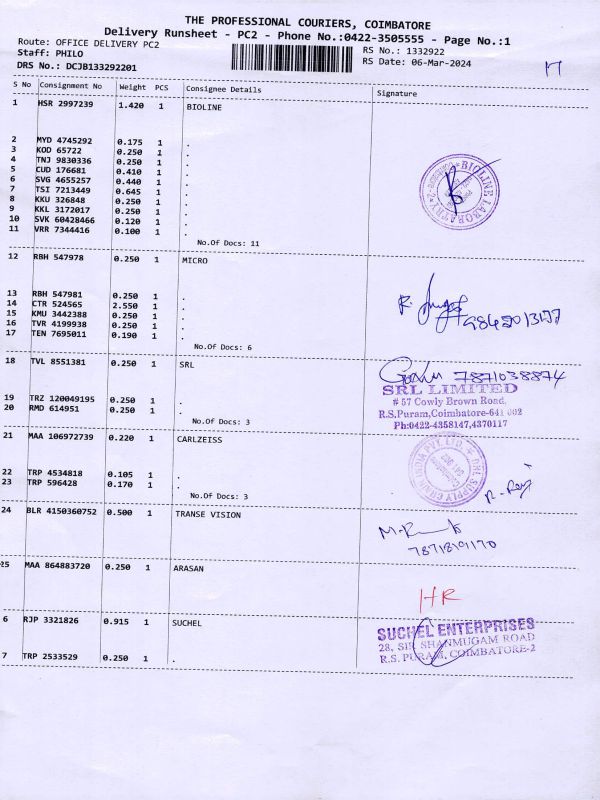 THE PROFESSIONAL COURIERS, COIMBATORE
Delivery Runsheet - PC2 - Phone No.:0422-3505555 - Page No.:1
Route: OFFICE DELIVERY PC2 RS No.: 1332922
Staff: PHILO RS Date: 06-Mar-2024
DRS No.: DCJB133292201
17
S No Consignment No Weight PCS Consignee Details Signature
1 HSR 2997239 1.420 1 BIOLINE
2 MYD 4745292 0.175 1 .
3 KOD 65722 0.250 1 .
4 TNJ 9830336 0.250 1 .
5 CUD 176681 0.410 1 .
6 SVG 4655257 0.440 1 .
7 TSI 7213449 0.645 1 .
8 KKU 326848 0.250 1 .
9 KKL 3172017 0.250 1 .
10 SVK 60428466 0.120 1 .
11 VRR 7344416 0.100 1 .
No.Of Docs: 11
BIOLINE LABORATORY
12 RBH 547978 0.250 1 MICRO
13 RBH 547981 0.250 1 .
14 CTR 524565 2.550 1 .
15 KMU 3442388 0.250 1 .
16 TVR 4199938 0.250 1 .
17 TEN 7695011 0.190 1 .
No.Of Docs: 6
18 TVL 8551381 0.250 1 SRL
7871038874
SRL LIMITED
# 57 Cowly Brown Road,
R.S.Puram,Coimbatore-641 002
Ph:0422-4358147,4370117
19 TRZ 120049195 0.250 1 .
20 RMD 614951 0.250 1 .
No.Of Docs: 3
21 MAA 106972739 0.220 1 CARLZEISS
22 TRP 4534818 0.105 1 .
23 TRP 596428 0.170 1 .
No.Of Docs: 3
24 BLR 4150360752 0.500 1 TRANSE VISION
25 MAA 864883720 0.250 1 ARASAN
HR
6 RJP 3321826 0.915 1 SUCHEL
SUCHEL ENTERPRISES
28, SIR SHANMUGAM ROAD
R.S. PURAM, COIMBATORE-2
7 TRP 2533529 0.250 1 .